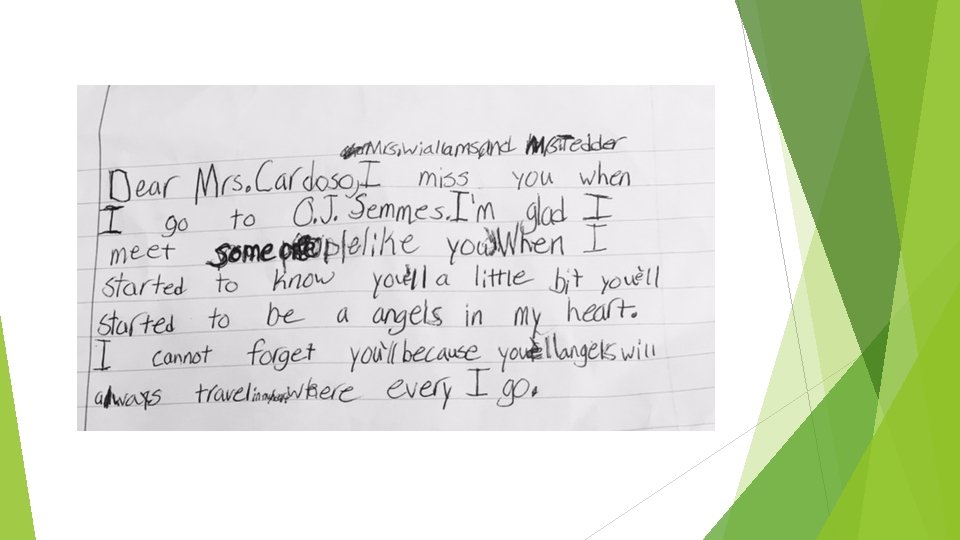 Mrs. Wiallams, and Mrs Tedder
Dear Mrs. Cardoso, I miss you when
I go to O.J. Semmes. I'm glad I
meet some people like you. When I
started to know you'll a little bit you'll
started to be a angels in my heart.
I cannot forget you'll because you'll angels will
always travel where every I go.